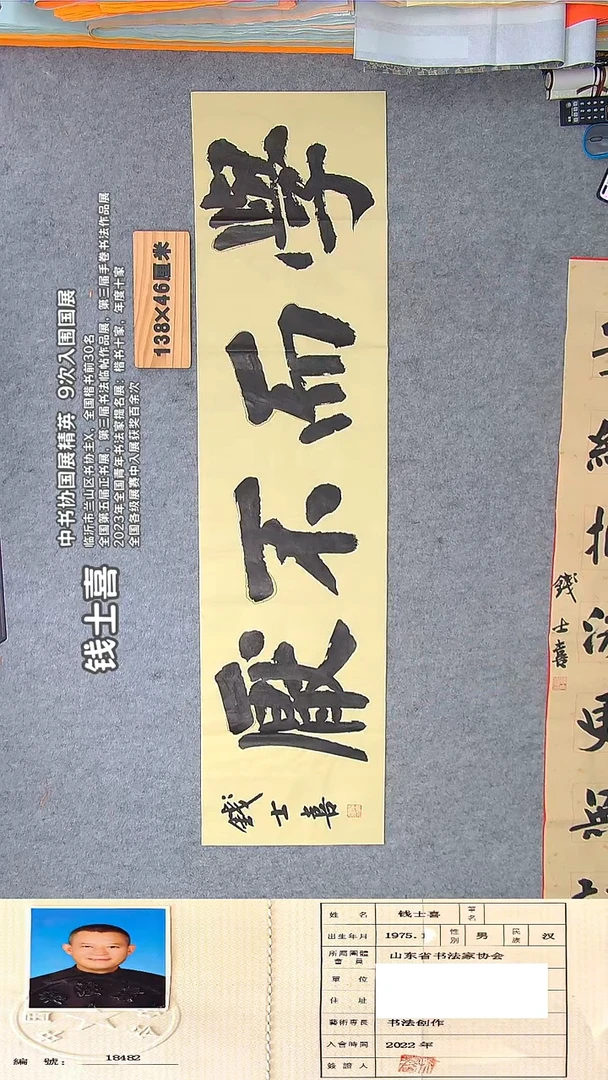 學而不厭
錢士喜
138×46厘米
钱士喜
中书协国展精英 9次入围国展
临沂市兰山区书协主X，全国楷书前30名
全国第五届正书展，第三届书法临帖作品展，第三届手卷书法作品展
2023年全国青年书法家提名展：楷书十家，年度十家
全国各级展赛中入展获奖百余次
錢士喜
編 號： 18482
姓 名 钱士喜 筆名
出生年月 1975.1 性別 男 民族 汉
所屬團體會員 山东省书法家协会
單 位
住 址
藝術專長 书法创作
入會時間 2022年
簽證人